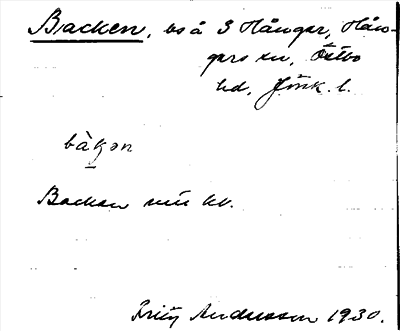 Backen, bs å 3 Hånger, Hån-
gers sn, Östbo
hd, Jönk. l.
bàkən
Backen
Fritz Andersson 1930.